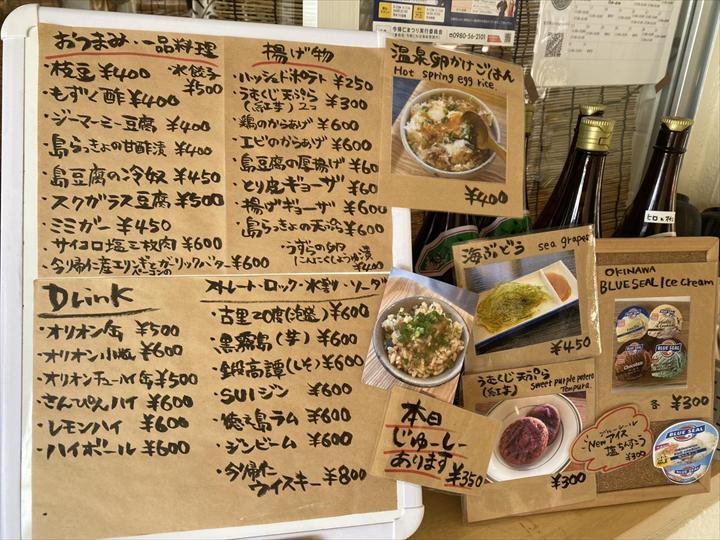 おつまみ・一品料理
枝豆 ¥400
・水餃子 ¥500
・もずく酢 ¥400
・ジーマーミー豆腐 ¥400
・島らっきょの甘酢漬 ¥400
・島豆腐の冷奴 ¥450
・スクガラス豆腐 ¥500
・ミミガー ¥450
・サイコロ塩三枚肉 ¥600
・今帰仁産エリンギ ガーリックバター ¥600
揚げ物
・ハッシュドポテト ¥250
・うむくじ天ぷら (紅芋) 2コ ¥300
・鶏のからあげ ¥600
・エビのからあげ ¥600
・島豆腐の厚揚げ ¥600
・とり皮ギョーザ ¥600
・揚げギョーザ ¥600
・島らっきょの天ぷら ¥600
・うずらの卵 にんにくしょうゆ漬 ¥400
Drink
・オリオン缶 ¥500
・オリオン小瓶 ¥600
・オリオンチューハイ缶 ¥500
・さんぴんハイ ¥600
・レモンハイ ¥600
・ハイボール ¥600
ストレート・ロック・水割り・ソーダ
・古里20度(泡盛) ¥600
・黒霧島(芋) ¥600
・鍛高譚(しそ) ¥600
・SUIジン ¥600
・徳之島ラム ¥600
・ジンビーム ¥600
・今帰仁ウイスキー ¥800
温泉卵かけごはん
Hot spring egg rice.
¥400
海ぶどう sea grapes
¥450
うむくじ天ぷら
(紅芋) Sweet purple potato
Tempura.
¥300
本日
じゅーしー
あります
¥350
OKINAWA
BLUE SEAL Ice cream
各 ¥300
New アイス
塩ちんすこう
¥300
BLUE SEAL
☎0980-56-2101